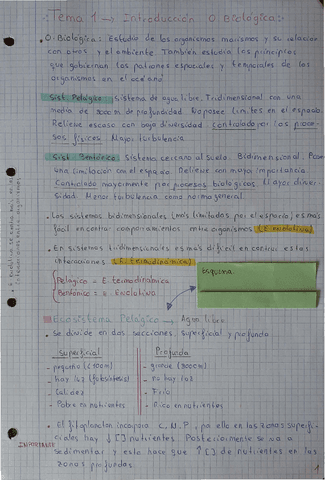 Tema 1 → Introducción O. Biológica:
• O. Biológica: Estudio de los organismos marinos y su relación
con otros y el ambiente. También estudia los principios
que gobiernan los patrones espaciales y temporales de los
organismos en el océano
Sist. Pelágico: Sistema de agua libre. Tridimensional con una
media de 3000 m de profundidad. No posee límites en el espacio.
Relieve escaso con baja diversidad controlado por los proce-
sos físicos. Mayor turbulencia.
Sist. Bentónico: Sistema cercano al suelo. Bidimensional. Posee
una limitación con el espacio. Relieve con mayor importancia.
Controlado mayormente por procesos biológicos. Mayor diver-
sidad. Menor turbulencia como norma general.
• Los sistemas bidimensionales (más limitados por el espacio), es más
fácil encontrar comportamientos entre organismos (E. evolutiva)
• En sistemas tridimensionales es más difícil encontrar estas
interacciones (E. termodinámica)
Pelágico = E. termodinámica
Bentónico = E. Evolutiva
esquema
Ecosistema Pelágico → Agua libre
• Se divide en dos secciones, superficial y profunda
Superficial Profunda
- pequeño (<100m) - grande (3000m)
- hay luz (fotosíntesis) - no hay luz
- Calidez - Fría
- Pobre en nutrientes - Rica en nutrientes
• El fitoplancton incorpora C, N, P, por ello en las zonas superfi-
ciales hay ↓ [] nutrientes. Posteriormente se va a
sedimentar y esto hace que ↑ [] de nutrientes en las
zonas profundas.
1